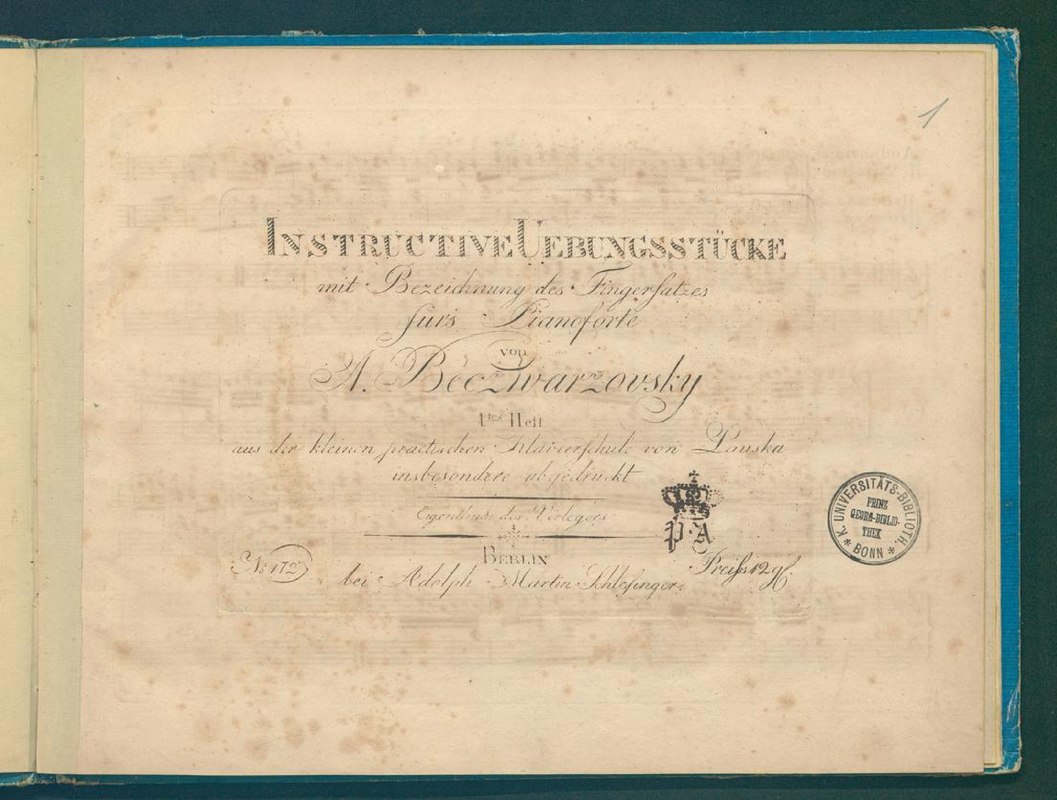 1
INSTRUCTIVE UEBUNGSSTÜCKE
mit Bezeichnung des Fingersatzes
fürs Pianoforte
von
A. Bĕczwarzovsky
1tes Heft
aus der kleinen practischen Klavierschule von Lauska
insbesondere abgedruckt
Eigenthum des Verlegers
P. A
No 172
BERLIN
Preiss 12 g
bei Adolph Martin Schlesinger.
K. UNIVERSITÄTS-BIBLIOTH.
PRINZ
GEORG-BIBLIO-
THEK
* BONN *